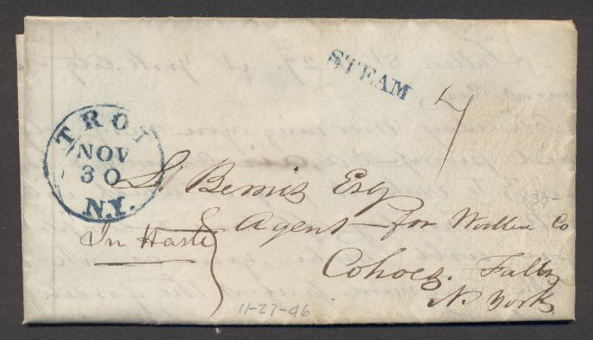 STEAM
TROY
NOV
30
N.Y.
Bemis Esq
Agent for Woollen Co
In Haste
Cohoes Falls
N. York
11-27-46